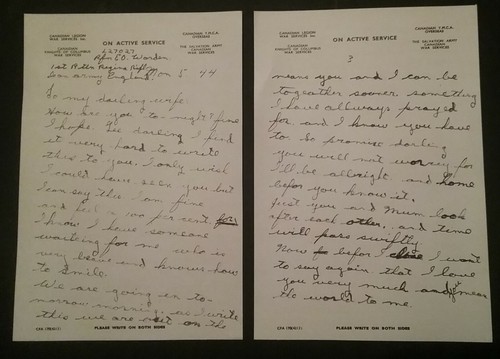 CANADIAN LEGION
WAR SERVICES Inc.
CANADIAN
KNIGHTS OF COLUMBUS
WAR SERVICES
ON ACTIVE SERVICE
CANADIAN Y.M.C.A.
OVERSEAS
THE SALVATION ARMY
CANADIAN
WAR SERVICES
L27027
Rfn E.O. Worden
1st Bttn Regina Rifles
Can Army England
5 44
To my darling wife:
How are you to-night? fine
I hope. Gee darling I find
it very hard to write
this to you. I only wish
I could have seen you but
I can say this I am fine
and feel per cent for
I know I have someone
waiting for me who is
very brave and knows how
to smile.
We are going in to-
morrow morning. as I write
this we are out on the
CPA (PBM(1)
PLEASE WRITE ON BOTH SIDES
CANADIAN LEGION
WAR SERVICES Inc.
CANADIAN
KNIGHTS OF COLUMBUS
WAR SERVICES
ON ACTIVE SERVICE
CANADIAN Y.M.C.A.
OVERSEAS
THE SALVATION ARMY
CANADIAN
WAR SERVICES
3
means you and I can be
togeather sooner. something
I have allways prayed
for and I know you have
to. So promise darling
you will not worry for
I'll be allright and home
befor you know it.
Just you and Mum look
after each other, and time
will pass swiftly.
Now befor I close I want
to say again that I love
you very much and mean
the world to me.
PLEASE WRITE ON BOTH SIDES